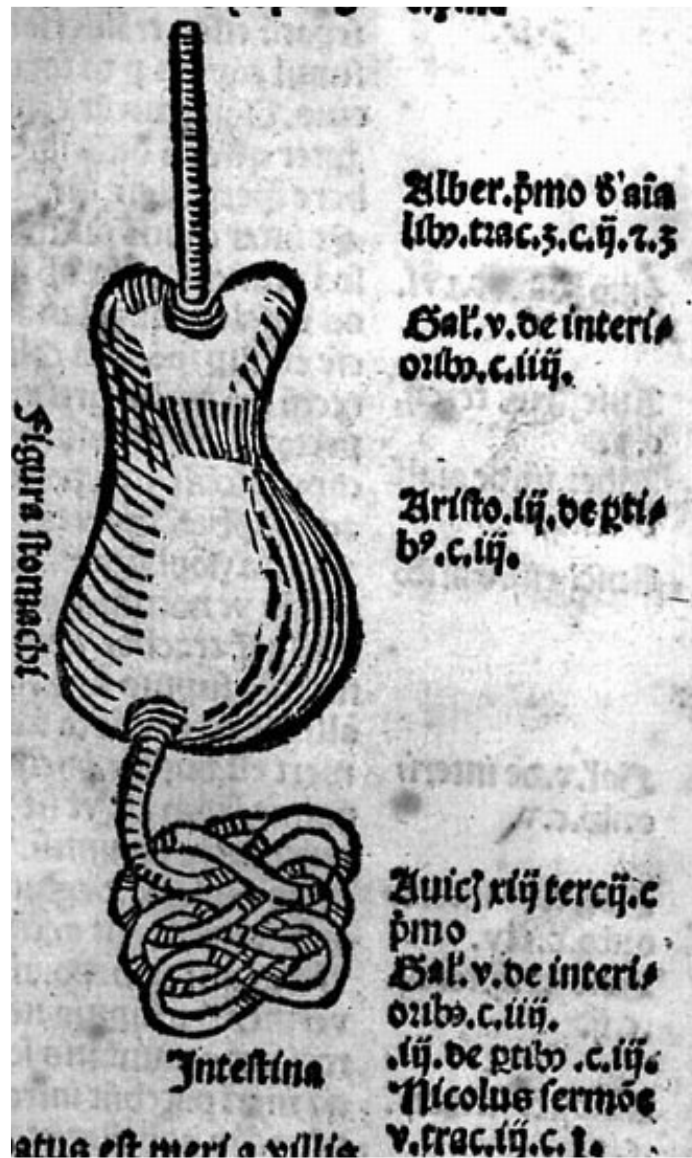 Figura stomachi
Alber.p̄mo d'aīa
libꝫ.trac.3.c.ij.⁊.3
Gal'.v.de interi⸗
oribꝫ.c.iiij.
Aristo.iij.de ꝑti⸗
bꝰ.c.iij.
Auicꝭ xiij tercij.c
p̄mo
Gal'.v.de interi⸗
oribꝫ.c.iiij.
.iij.de ꝑtibꝫ.c.iij.
Nicolus sermōe
v.trac.iij.c.1.
Intestina
est meri a villis